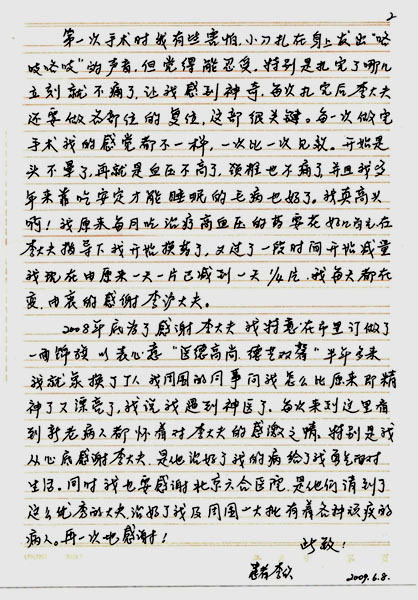 2
第一次手术时我有些害怕,小刀扎在身上发出"咯
吱咯吱"的声音,但觉得能忍受。特别是扎完了哪儿
立刻就不痛了,让我感到神奇。每次扎完后李大夫
还要做各部位的复位,这都很关键。每一次做完
手术我的感觉都不一样,一次比一次见效。开始是
头不晕了,再就是血压不高了,颈椎也不痛了,并且我多
年来靠吃安定才能睡眠的毛病也好了。我真高兴
啊!我原来每月吃治疗高血压的药要花好几百元在
李大夫指导下我开始换药了,又过了一段时间开始减量
我现在由原来一天一片已减到一天1/4片。我每天都在
变,由衷的感谢李大夫。
2008年底为了感谢李大夫我特意在市里订做了
一面锦旗以表心意"医德高尚 德艺双馨"半年多来
我就象换了个人我周围的同事问我怎么比原来即精
神了又漂亮了,我说我遇到神医了。每次来到这里看
到新老病人都怀着对李大夫的感激之情。特别是我
从心底感谢李大夫,是他治好了我的病给了我勇气面对
生活。同时我也要感谢北京六合医院,是他们请到了
这么优秀的大夫治好了我及周围一大批有着各种该疾的
病人。再一次地感谢!
此致!
患者李
2009.6.8.